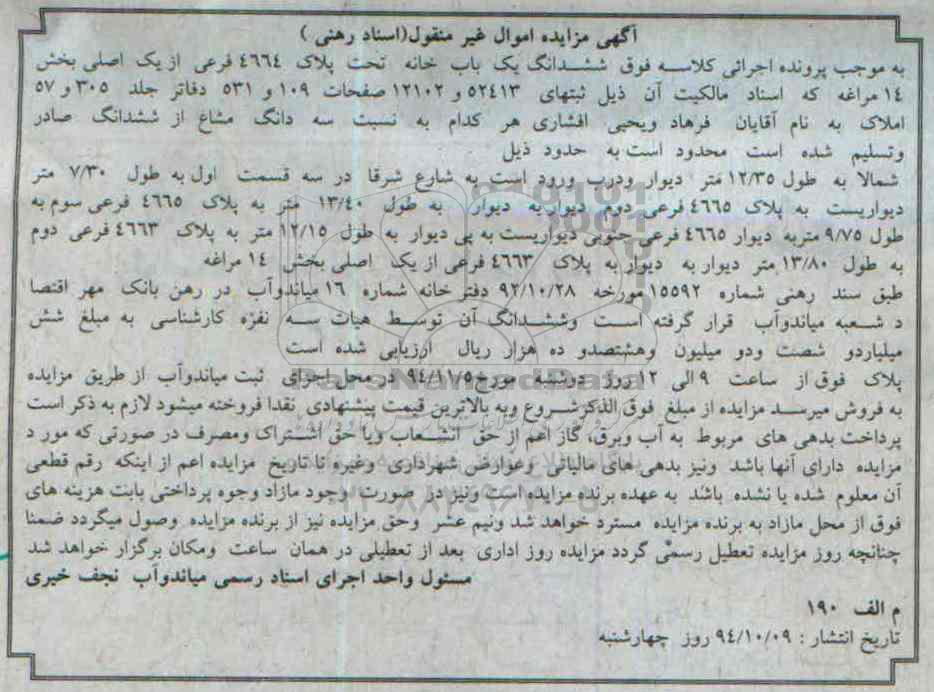 آگهی مزایده اموال غیر منقول(اسناد رهنی )
به موجب پرونده اجرائی کلاسه فوق ششدانگ یک باب خانه تحت پلاک ۴۶۶۴ فرعی از یک اصلی بخش
۱۴ مراغه که اسناد مالکیت آن ذیل ثبتهای ۵۲۴۱۳ و ۱۲۱۰۲ صفحات ۱۰۹ و ۵۳۱ دفاتر جلد ۳۰۵ و ۵۷
املاک به نام آقایان فرهاد ویحیی افشاری هر کدام به نسبت سه دانگ مشاع از ششدانگ صادر
وتسلیم شده است محدود است به حدود ذیل
شمالا به طول ۱۲/۳۵ متر دیوار ودرب ورود است به شارع شرقا در سه قسمت اول به طول ۷/۳۰ متر
دیواریست به پلاک ۴۶۶۵ فرعی دوم دیوار به دیوار به طول ۱۳/۴۰ متر به پلاک ۴۶۶۵ فرعی سوم به
طول ۹/۷۵ متربه دیوار ۴۶۶۵ فرعی جنوبی دیواریست به پی دیوار به طول ۱۲/۱۵ متر به پلاک ۴۶۶۳ فرعی دوم
به طول ۱۳/۸۰ متر دیوار به دیوار به پلاک ۴۶۶۳ فرعی از یک اصلی بخش ۱۴ مراغه
طبق سند رهنی شماره ۱۵۵۹۲ مورخه ۹۲/۱۰/۲۸ دفتر خانه شماره ۱۶ میاندوآب در رهن بانک مهر اقتصا
د شعبه میاندوآب قرار گرفته است وششدانگ آن توسط هیات سه نفره کارشناسی به مبلغ شش
میلیاردو شصت ودو میلیون وهشتصدو ده هزار ریال ارزیابی شده است
پلاک فوق از ساعت ۹ الی ۱۲ روز دوشنبه مورخ ۹۴/۱۱/۵ در محل اجرای ثبت میاندوآب از طریق مزایده
به فروش میرسد مزایده از مبلغ فوق الذکر شروع وبه بالاترین قیمت پیشنهادی نقدا فروخته میشود لازم به ذکر است
پرداخت بدهی های مربوط به آب وبرق، گاز اعم از حق انشعاب ویا حق اشتراک ومصرف در صورتی که مور د
مزایده دارای آنها باشد ونیز بدهی های مالیاتی وعوارض شهرداری وغیره تا تاریخ مزایده اعم از اینکه رقم قطعی
آن معلوم شده یا نشده باشد به عهده برنده مزایده است ونیز در صورت وجود مازاد وجوه پرداختی بابت هزینه های
فوق از محل مازاد به برنده مزایده مسترد خواهد شد ونیم عشر وحق مزایده نیز از برنده مزایده وصول میگردد ضمنا
چنانچه روز مزایده تعطیل رسمی گردد مزایده روز اداری بعد از تعطیلی در همان ساعت ومکان برگزار خواهد شد
مسئول واحد اجرای اسناد رسمی میاندوآب نجف خیری
م الف ۱۹۰
تاریخ انتشار : ۹۴/۱۰/۰۹ روز چهارشنبه
ParsNamadData